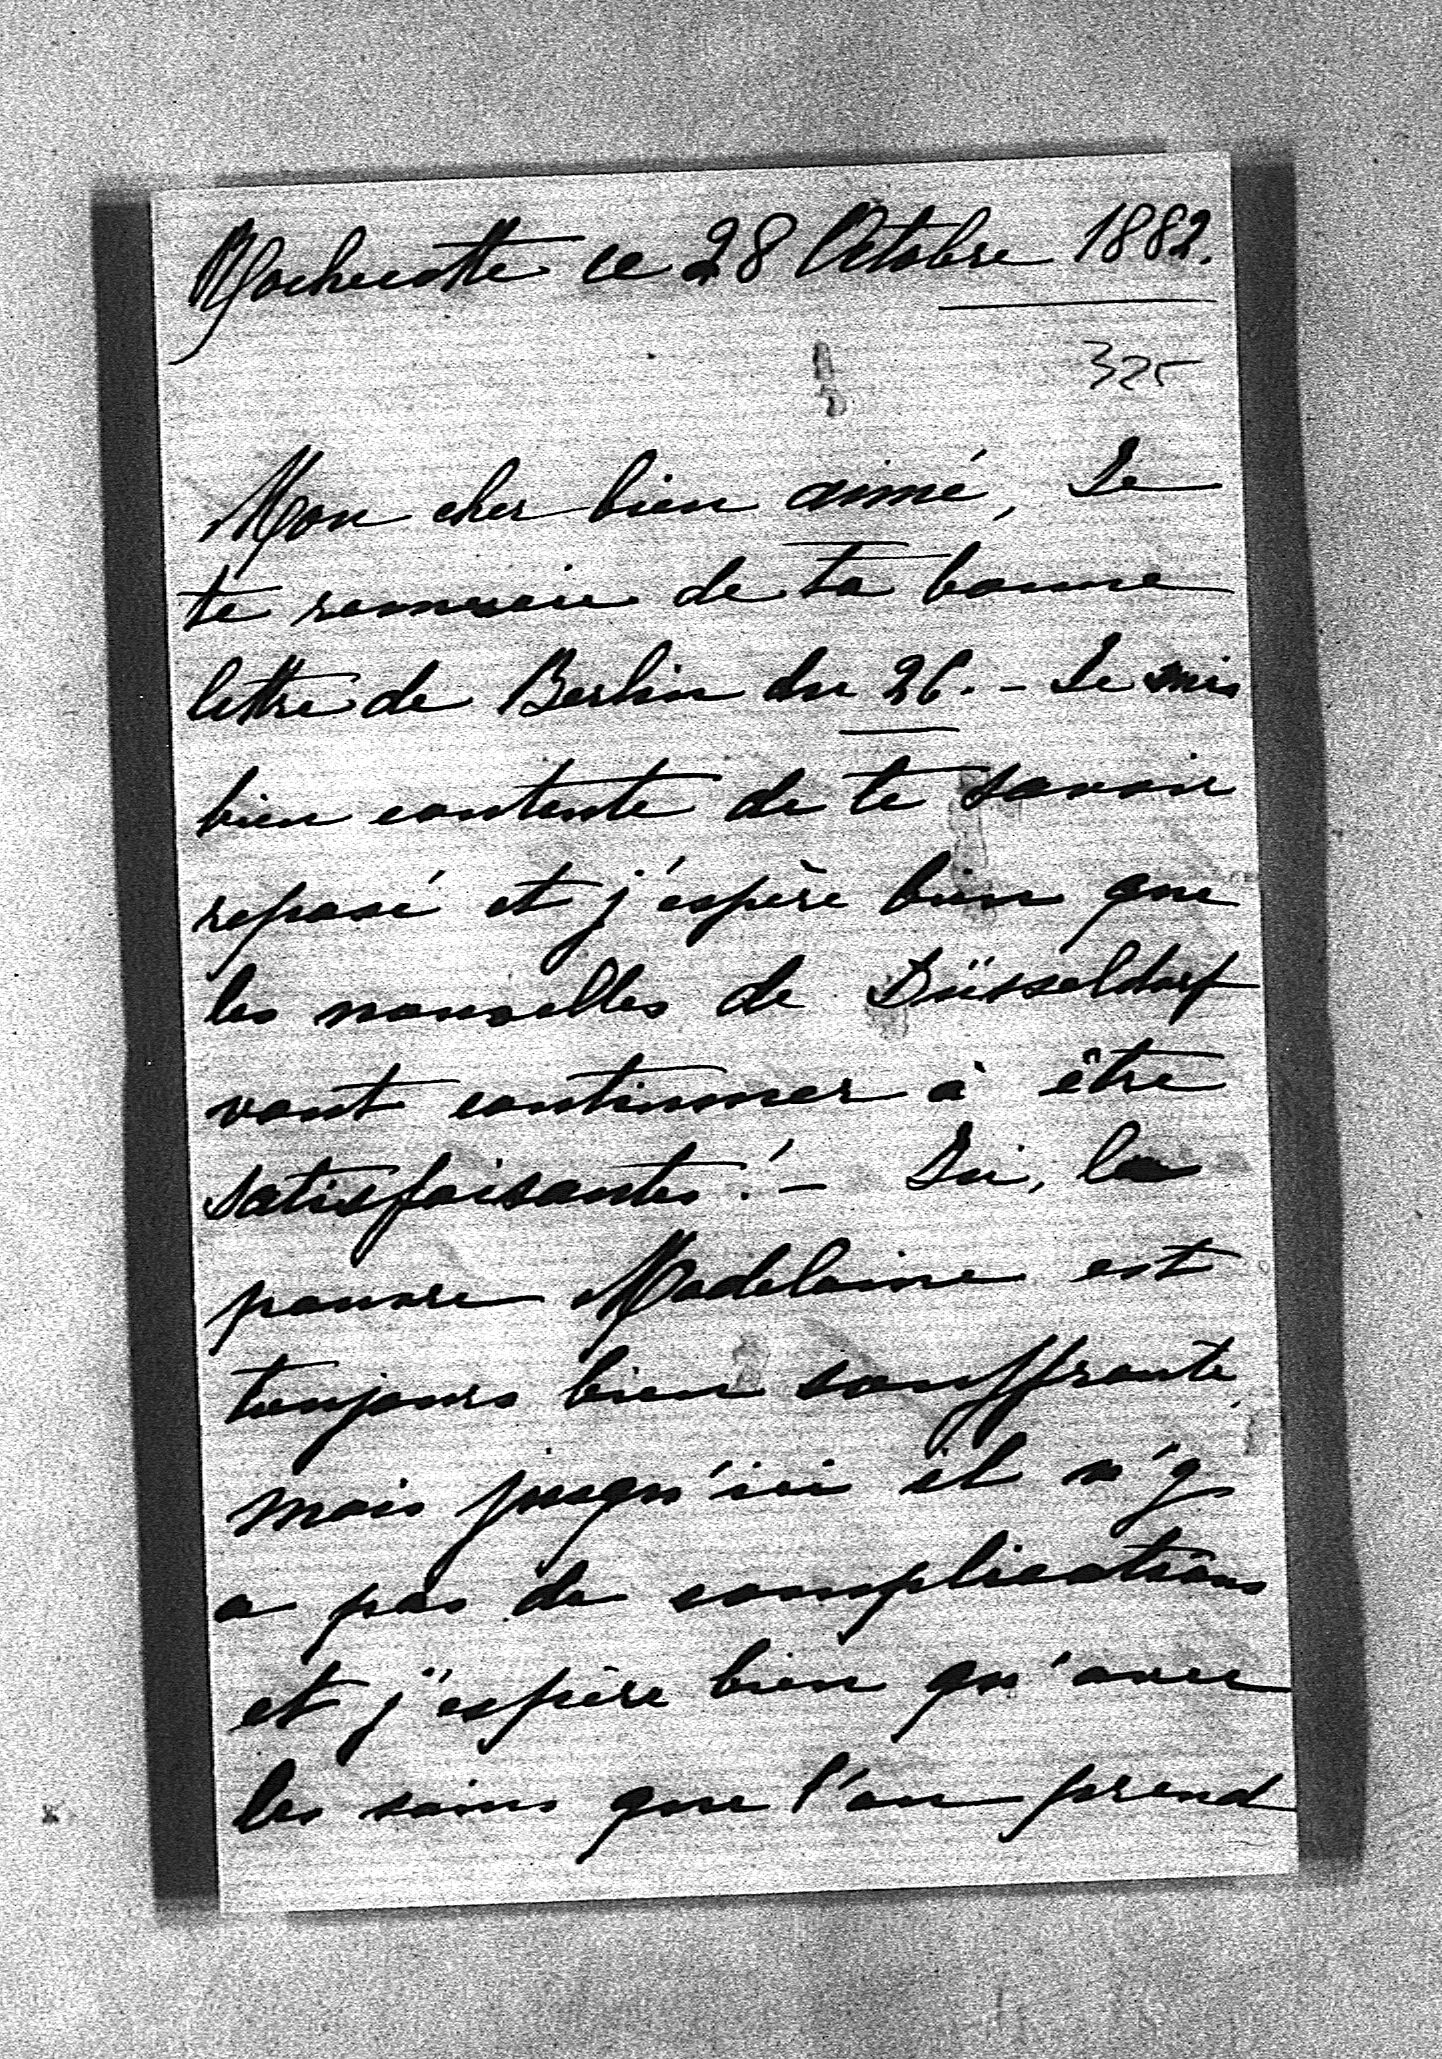 Rochecotte ce 28 Octobre 1882.
325
Mon cher bien aimé, Je
te remercie de ta bonne
lettre de Berlin du 26. - Je suis
bien contente de te savoir
reposé et j'espère bien que
les nouvelles de Düsseldorf
vont continuer à être
satisfaisantes! - Ici, la
pauvre Madelaine est
toujours bien souffrante,
mais jusqu'ici il n'y
a pas de complications
et j'espère bien qu'avec
les soins que l'on prend